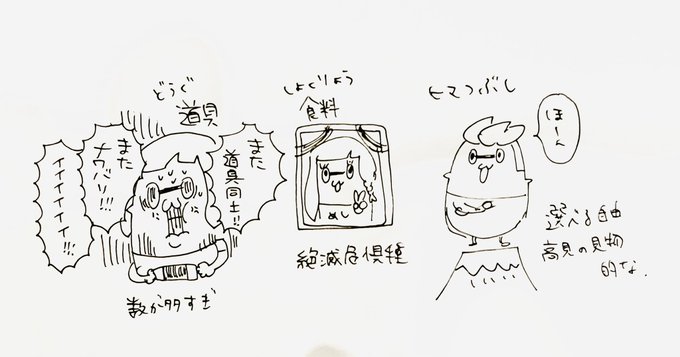 どうぐ
道具
また
道具同士!!
また
ナワバリ!!!
イイイイイイイ!!!
数が多すぎ
しょくりょう
食料
めし
絶滅危惧種
ヒマつぶし
ほーん
選べる自由
高見の見物
的な.